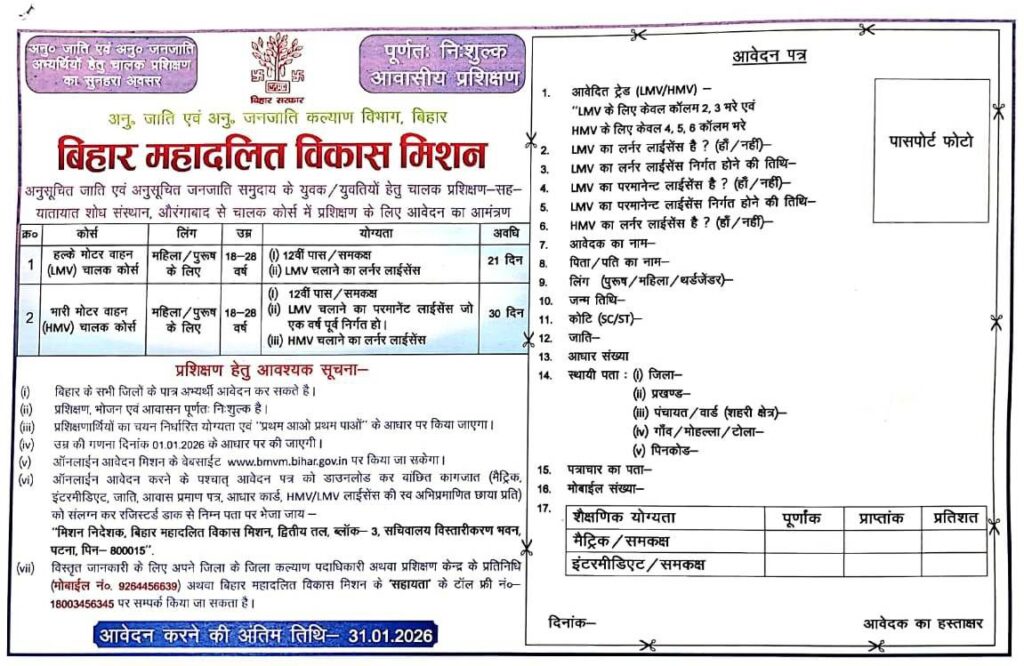 अनु० जाति एवं अनु० जनजाति
अभ्यर्थियों हेतु चालक प्रशिक्षण
का सुनहरा अवसर
बिहार सरकार
पूर्णतः निःशुल्क
आवासीय प्रशिक्षण
अनु. जाति एवं अनु. जनजाति कल्याण विभाग, बिहार
बिहार महादलित विकास मिशन
अनुसूचित जाति एवं अनुसूचित जनजाति समुदाय के युवक/युवतियों हेतु चालक प्रशिक्षण–सह–
यातायात शोध संस्थान, औरंगाबाद से चालक कोर्स में प्रशिक्षण के लिए आवेदन का आमंत्रण
क्र० कोर्स लिंग उम्र योग्यता अवधि
1 हल्के मोटर वाहन (LMV) चालक कोर्स महिला/पुरूष के लिए 18–28 वर्ष (i) 12वीं पास/समकक्ष
(ii) LMV चलाने का लर्नर लाईसेंस 21 दिन
2 भारी मोटर वाहन (HMV) चालक कोर्स महिला/पुरूष के लिए 18–28 वर्ष (i) 12वीं पास/समकक्ष
(ii) LMV चलाने का परमानेंट लाईसेंस जो
एक वर्ष पूर्व निर्गत हो।
(iii) HMV चलाने का लर्नर लाईसेंस 30 दिन
प्रशिक्षण हेतु आवश्यक सूचना–
(i) बिहार के सभी जिलों के पात्र अभ्यर्थी आवेदन कर सकते है।
(ii) प्रशिक्षण, भोजन एवं आवासन पूर्णतः निःशुल्क है।
(iii) प्रशिक्षणार्थियों का चयन निर्धारित योग्यता एवं "प्रथम आओ प्रथम पाओं" के आधार पर किया जाएगा।
(iv) उम्र की गणना दिनांक 01.01.2026 के आधार पर की जाएगी।
(v) ऑनलाईन आवेदन मिशन के वेबसाईट www.bmvm.bihar.gov.in पर किया जा सकेगा।
(vi) ऑनलाईन आवेदन करने के पश्चात् आवेदन पत्र को डाउनलोड कर वांछित कागजात (मैट्रिक,
इंटरमीडिएट, जाति, आवास प्रमाण पत्र, आधार कार्ड, HMV/LMV लाईसेंस की स्व अभिप्रमाणित छाया प्रति)
को संलग्न कर रजिस्टर्ड डाक से निम्न पता पर भेजा जाय –
"मिशन निदेशक, बिहार महादलित विकास मिशन, द्वितीय तल, ब्लॉक– 3, सचिवालय विस्तारीकरण भवन,
पटना, पिन– 800015".
(vii) विस्तृत जानकारी के लिए अपने जिला के जिला कल्याण पदाधिकारी अथवा प्रशिक्षण केन्द्र के प्रतिनिधि
(मोबाईल नं०. 9264456639) अथवा बिहार महादलित विकास मिशन के 'सहायता' के टॉल फ्री नं०–
18003456345 पर सम्पर्क किया जा सकता है।
आवेदन करने की अंतिम तिथि– 31.01.2026
आवेदन पत्र
1. आवेदित ट्रेड (LMV/HMV) –
"LMV के लिए केवल कॉलम 2, 3 भरे एवं
HMV के लिए केवल 4, 5, 6 कॉलम भरे
2. LMV का लर्नर लाईसेंस है ? (हाँ/नहीं)–
3. LMV का लर्नर लाईसेंस निर्गत होने की तिथि–
4. LMV का परमानेन्ट लाईसेंस है ? (हाँ/नहीं)–
5. LMV का परमानेन्ट लाईसेंस निर्गत होने की तिथि–
6. HMV का लर्नर लाईसेंस है ? (हाँ/नहीं)–
7. आवेदक का नाम–
8. पिता/पति का नाम–
9. लिंग (पुरूष/महिला/थर्डजेंडर)–
10. जन्म तिथि–
11. कोटि (SC/ST)–
12. जाति–
13. आधार संख्या
14. स्थायी पता : (i) जिला–
(ii) प्रखण्ड–
(iii) पंचायत/वार्ड (शहरी क्षेत्र)–
(iv) गाँव/मोहल्ला/टोला–
(v) पिनकोड–
15. पत्राचार का पता–
16. मोबाईल संख्या–
17. शैक्षणिक योग्यता पूर्णांक प्राप्तांक प्रतिशत
मैट्रिक/समकक्ष
इंटरमीडिएट/समकक्ष
पासपोर्ट फोटो
दिनांक–
आवेदक का हस्ताक्षर